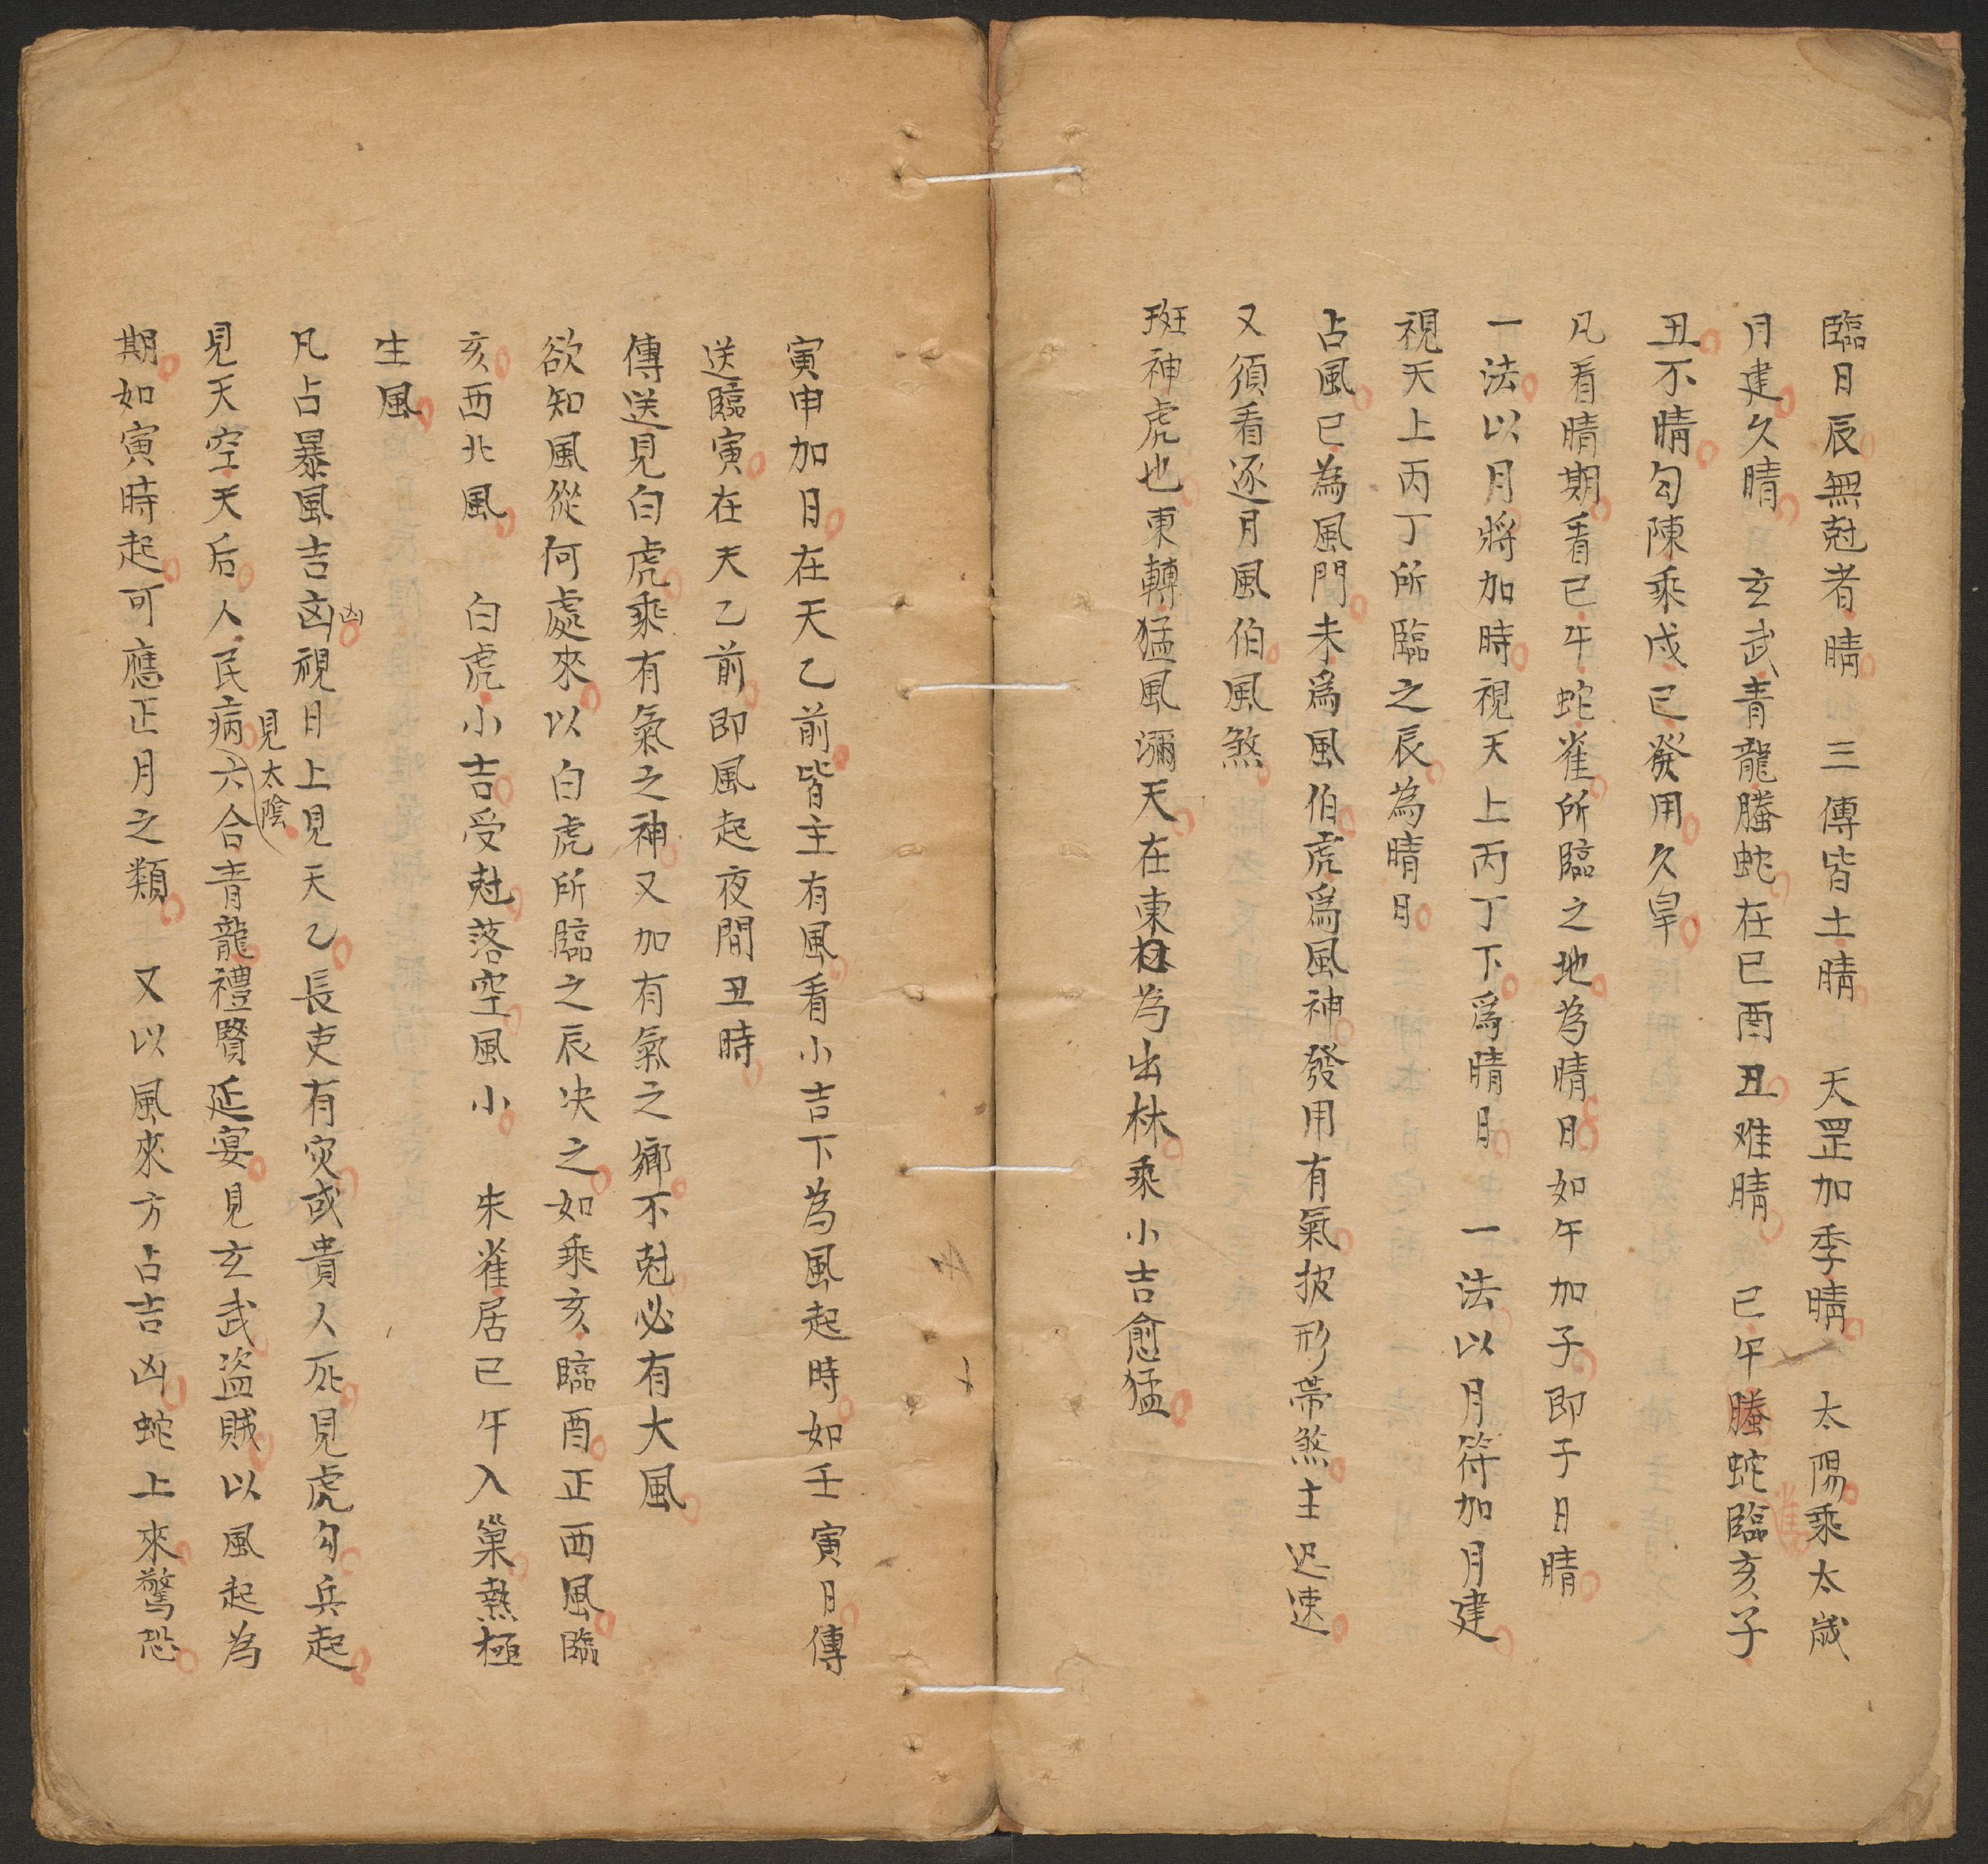 臨日辰無尅者晴　三傳皆土晴　天罡加季晴　太陽乘太歲
月建久晴　玄武青龍螣蛇在巳酉丑难晴　巳午螣蛇臨亥子
雀
丑不晴勾陳乘戌巳發用久旱
凡看晴期看巳午蛇雀所臨之地為晴日如午加子即子日晴
一法以月將加時視天上丙丁下爲晴日　一法以月符加月建
視天上丙丁所臨之辰為晴日
占風巳為風門未爲風伯虎爲風神發用有氣披形帶煞主迅速
又須看逐月風伯風煞
斑神虎也東轉猛風瀰天在東為出林乘小吉愈猛
寅申加日在天乙前皆主有風看小吉下為風起時如壬寅日傳
送臨寅在天乙前即風起夜間丑時
傳送見白虎乘有氣之神又加有氣之鄉不尅必有大風
欲知風從何處來以白虎所臨之辰决之如乘亥臨酉正西風臨
亥西北風　白虎小吉受尅落空風小　朱雀居巳午入巢熱極
生風
凡占暴風吉凶視日上見天乙長吏有灾或貴人死見虎勾兵起
凶
見天空天后人民病六合青龍禮賢延宴見玄武盜賊以風起為
見太陰
期如寅時起可應正月之類　又以風來方占吉凶蛇上來驚恐